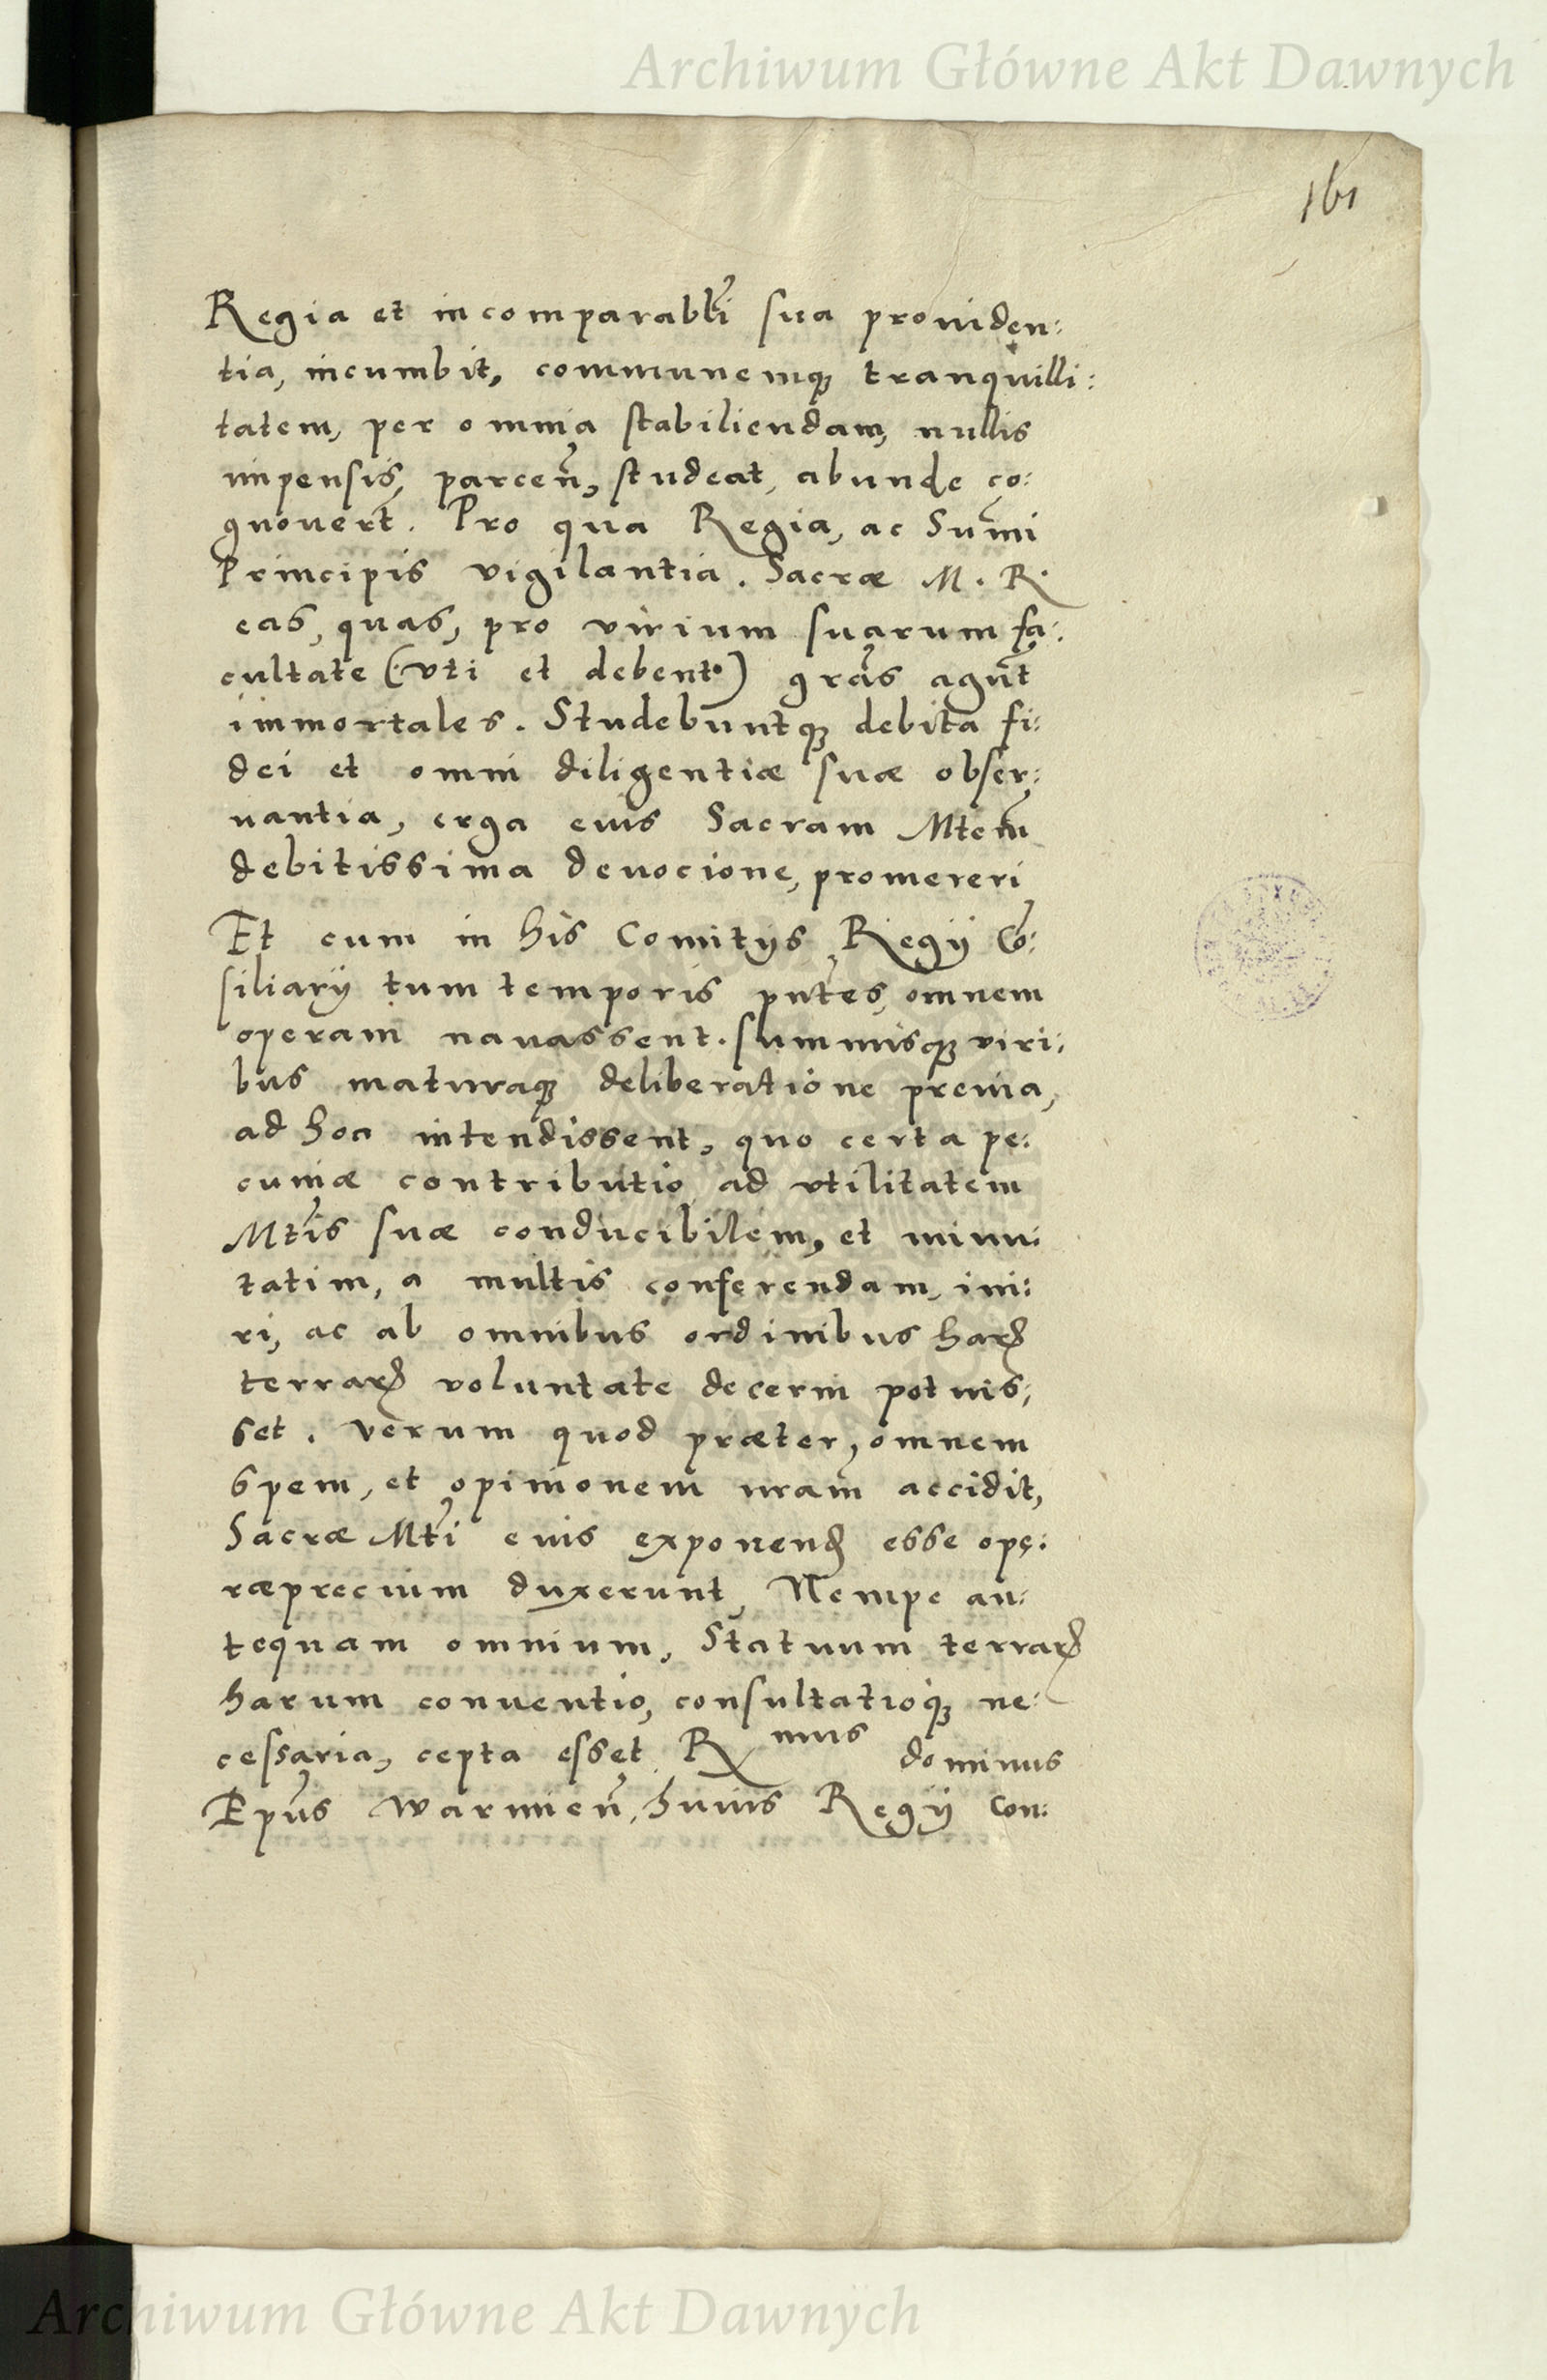 Archiwum Główne Akt Dawnych
161
Regia et incomparabłi sua prouiden:
tia, incumbit, communemq̃ tranquilli:
tatem, per omnia stabiliendam, nullis
impensis, parceñ, studeat, abunde co:
gnouert̃. Pro qua Regia, ac Sum̃i
Principis vigilantia. Sacræ M. R.
eas, quas, pro virium suarum fa:
cultate (vti et debent) gr̃as agũt
immortales. Studebuntq̃ debita fi:
dei et omni diligentiæ suæ obser:
uantia, erga eius Sacram Mtem̃
debitissima deuocione, promereri
Et cum in his Comitijs Regij Cõ:
siliarij tum temporis pñtes, omnem
operam nauassent. summisq̃ viri:
bus maturaq̃ deliberatione preuia,
ad hoc intendissent, quo certa pe:
cuniæ contributio ad vtilitatem
Mtĩs suæ conducibilem, et minu:
tatim, a multis conferendam, ini:
ri, ac ab omnibus ordinibus harꝝ
terrarꝝ voluntate decerni potuis:
set. Verum quod præter, omnem
spem, et opinionem nram̃ accidit,
Sacræ Mtĩ eius exponendꝫ esse ope:
ræprecium duxerunt, Nempe an:
tequam omnium, Statuum terrarꝝ
harum conuentio, consultatioq̃ ne:
cessaria, cepta esset R mus dominus
Epũs Warmieñ, huius Regij Con:
Archiwum Główne Akt Dawnych